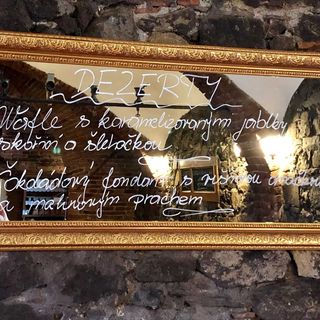 DEZERTY
Wafle s karamelizovanými jablky
skořicí a šlehačkou
Čokoládový fondant s
a malinovým prachem